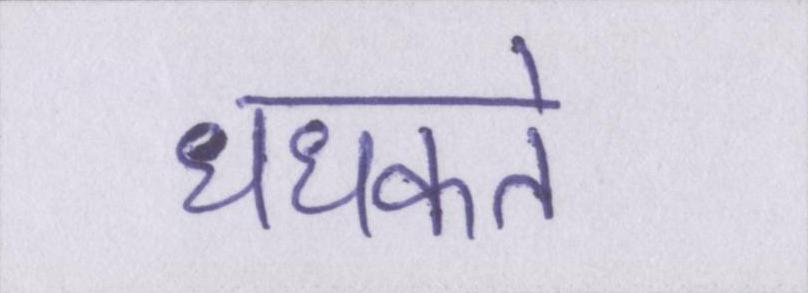 धधकते